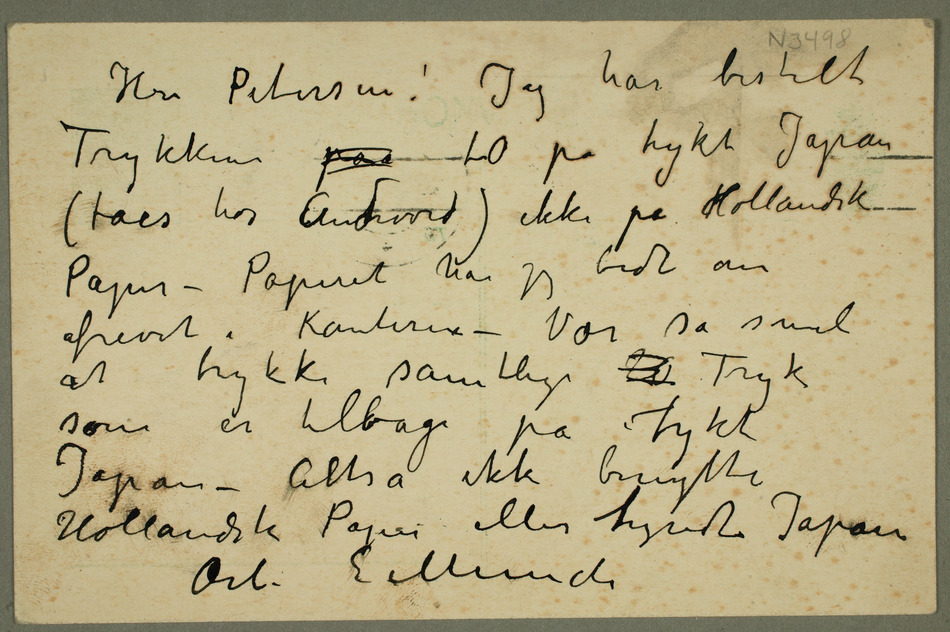 N3498
Herr Petersen! Jeg har bestilt
Trykkene paa 10 pa tykt Japan
(taes hos Andvord) ikke pa Hollandsk
Papir – Papiret har jeg bedt om
afrevet i Kanterne – Vær sa snil
at trykke samtlige Tryk
som er tilbage pa tykt
Japan – Altsa ikke benytte
Hollandsk Papir eller tyndt Japan
Erb. E Munch